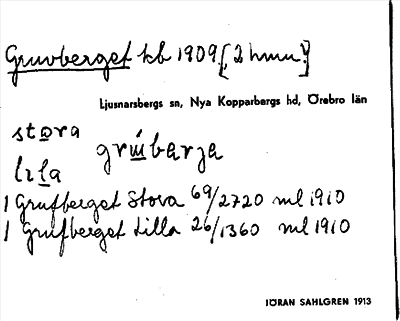 Gruvberget kb 1909 [2 hmn?]
Ljusnarsbergs sn, Nya Kopparbergs hd, Örebro län
stora
grúbarja
lila
1 Grufberget Stora 69/2720 ml 1910
1 Grufberget Lilla 26/1360 ml 1910
JÖRAN SAHLGREN 1913